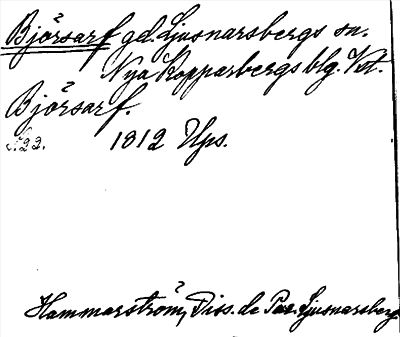 Björsarf gd. Ljusnarsbergs sn.
Nya Kopparbergs blg. Vst.
Björsarf.
s. 22. 1812 Ups.
Hammarström, Diss. de Par. Ljusnarsberg